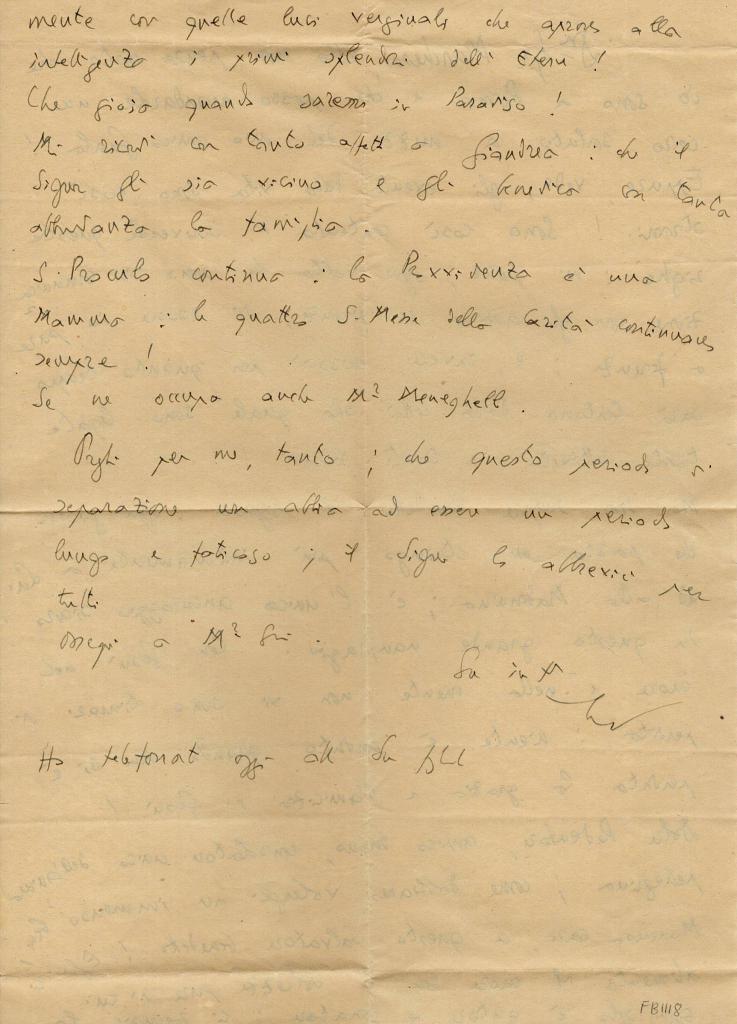 mente con quelle luci verginali che aprono alla
intelligenza i primi splendori dell' Eterno !
Che gioia quando saremo in Paradiso !
Mi ricordi con tanto affetto a Giandrea : che il
Signore gli sia vicino e gli benedica con tanta
abbondanza la famiglia .
S. Procolo continua : la Provvidenza è una
Mamma : le quattro S. Messe della Carità continuano
sempre !
Se ne occupa anche Mr Meneghello .
Preghi per me, tanto ; che questo periodo di
separazione non abbia ad essere un periodo
lungo e faticoso ; il Signore lo abbrevii per
tutti
ossequi a Mr
Suo in X
Ho telefonato oggi alla Sua
FB1118